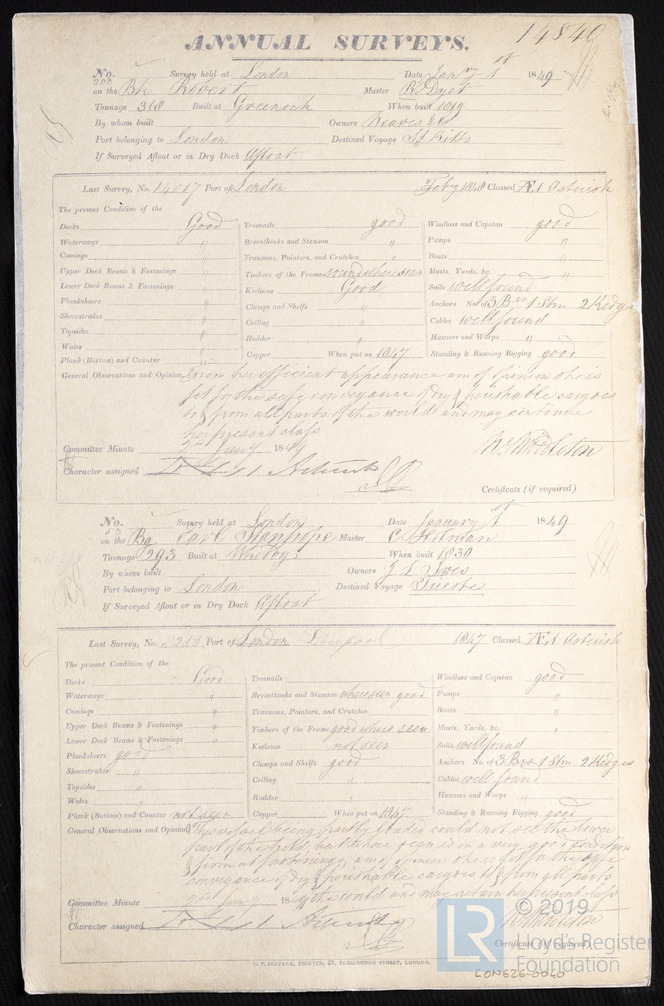 14840
ANNUAL SURVEYS.
No. Survey held at London Date Jany 1st 1849
on the Bk Robert Master R Dyet
Tonnage 318 Built at Greenock When built 1819
By whom built Owners Reaves &Co
Port belonging to London Destined Voyage St Kitts
If Surveyed Afloat or in Dry Dock Afloat
Last Survey, No. Port of London Feby 1848 Classed Æ1 Asterisk
The present Condition of the
Decks Good Treenails good Windlass and Capstan good
Waterways " Breasthooks and Stemson " Pumps "
Comings " Transoms, Pointers, and Crutches " Boats "
Upper Deck Beams & Fastenings " Timbers of the Frame sound where seen Masts, Yards, &c. "
Lower Deck Beams & Fastenings " Keelsons Good Sails well found
Planksheers " Clamps and Shelfs " Anchors No. of 3 Brs 1 Stm 2 Kedgs
Sheerstrakes " Ceiling " Cables well found
Topsides " Rudder " Hawsers and Warps "
Wales " Copper When put on 1847 Standing & Running Rigging good
Plank (Bottom) and Counter "
General Observations and Opinion, From her efficient appearance am of opinion she is
fit for the safe conveyance of dry & perishable cargoes
to & from all parts of the world and may continue
her present class
Committee Minute 2nd Jany 1849 Wm Middleton
Character assigned
Certificate (if required)
No. Survey held at London Date January 1st 1849
on the Bg Earl Stanhope Master
Tonnage 293 Built at Whitby When built 1830
By whom built Owners J S Ives
Port belonging to London Destined Voyage Trieste
If Surveyed Afloat or in Dry Dock Afloat
Last Survey, No. Port of London Liverpool 1847 Classed Æ1 Asterisk
The present Condition of the
Decks Good Treenails Windlass and Capstan good
Waterways " Breasthooks and Stemson where seen good Pumps "
Comings " Transoms, Pointers, and Crutches Boats "
Upper Deck Beams & Fastenings " Timbers of the Frame good where seen Masts, Yards, &c. "
Lower Deck Beams & Fastenings " Keelsons not seen Sails well found
Planksheers good Clamps and Shelfs good Anchors No. of 3 Brs 1 Stm 2 Kedges
Sheerstrakes " Ceiling " Cables well found
Topsides " Rudder " Hawsers and Warps "
Wales " Copper When put on 1847 Standing & Running Rigging good
Plank (Bottom) and Counter not seen
General Observations and Opinion, This vessel being partly laden could not see the lower
part of the hold, but where seen is in a very good condition
& firm at fastenings, am of opinion she is fit for the safe
conveyance of dry & perishable cargoes to & from all parts
of the world and may retain her present class
Committee Minute 2nd Jany 18 Wm Middleton
Character assigned
Certificate (if required)
LR © 2019
Lloyd's Register
Foundation
LON626-0040